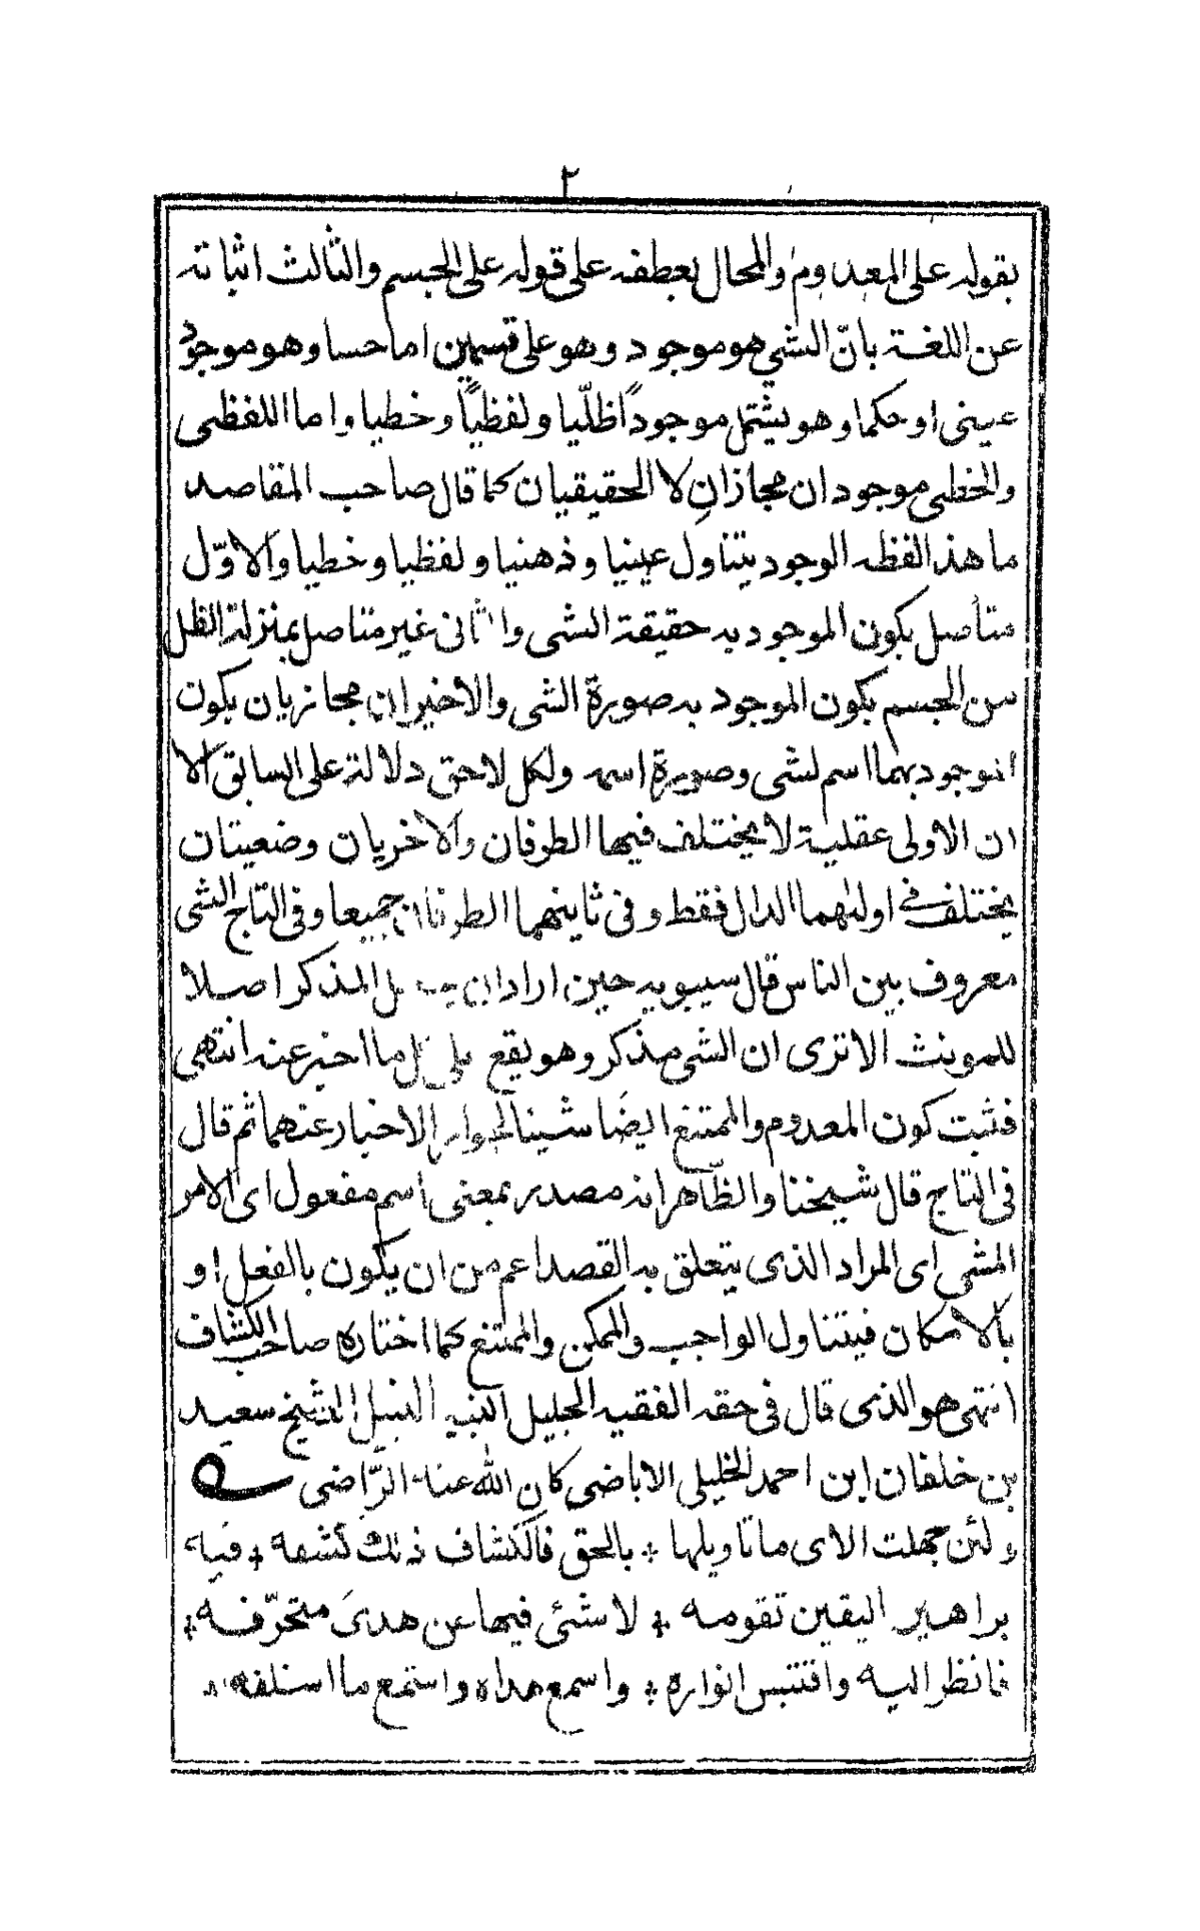 ٢
بقوله على المعدوم والمحال بعطفه على قوله على الجسم والثالث اثباته
عن اللغة بانّ الشي هو موجود وهو على قسمين اما حسا وهو موجود
عينى او حكما وهو يشتمل موجوداً ظلّيا ولفظياً وخطيا واما اللفظى
والخطى موجودان مجازانِ لا الحقيقيان كما قال صاحب المقاصد
ما هذا لفظه الوجود يتناول عينيا وذهنيا ولفظيا وخطيا والاوّل
متأصل يكون الموجود به حقيقة الشى والثانى غير متاصل بمنزلة الظل
من الجسم يكون الموجود به صورة الشى والاخيران مجازيان يكون
الموجود بهما اسم لشى وصورة اسمه ولكل لاحق دلالة على السابق الا
ان الاولى عقلية لا يختلف فيها الطرفان والاخريان وضعيتان
يختلف فى اولىهما الدال فقط وفى ثاينهما الطرفان جميعا وفى التاج الشى
معروف بين الناس قال سيبويه حين اراد ان المذكر اصلا
للمونث الا ترى ان الشى مذكر وهو يقع على كل ما اخبر عنه انتهى
فثبت كون المعدوم والممتنع ايضًا شيئا لجواز الاخبار عنهما ثم قال
فى التاج قال شيخنا والظّاهر انه مصدر بمعنى اسم مفعول اى الامر
المشى اى المراد الذى يتعلق به القصد اعم من ان يكون بالفعل او
بالامكان فيتناول الواجب والممكن والممتنع كما اختاره صاحب الكشاف
انتهى هو الذى قال فى حقه الفقيه الجليل النبيه النبيل الشيخ سعيد
بن خلفان ابن احمد الخليلى الاباضى كان الله عنا الرّاضى
ولئن جهلت الاى ما تاويلها ⁂ بالحق فالكشاف ذلك كشفه ⁂ فيه
براهير اليقين تقومه ⁂ لا شئى فيها عن هدىً متحرّفه ⁂
فانظر اليه واقتبس انواره ⁂ واسمع هداه واستمع ما اسنلفه